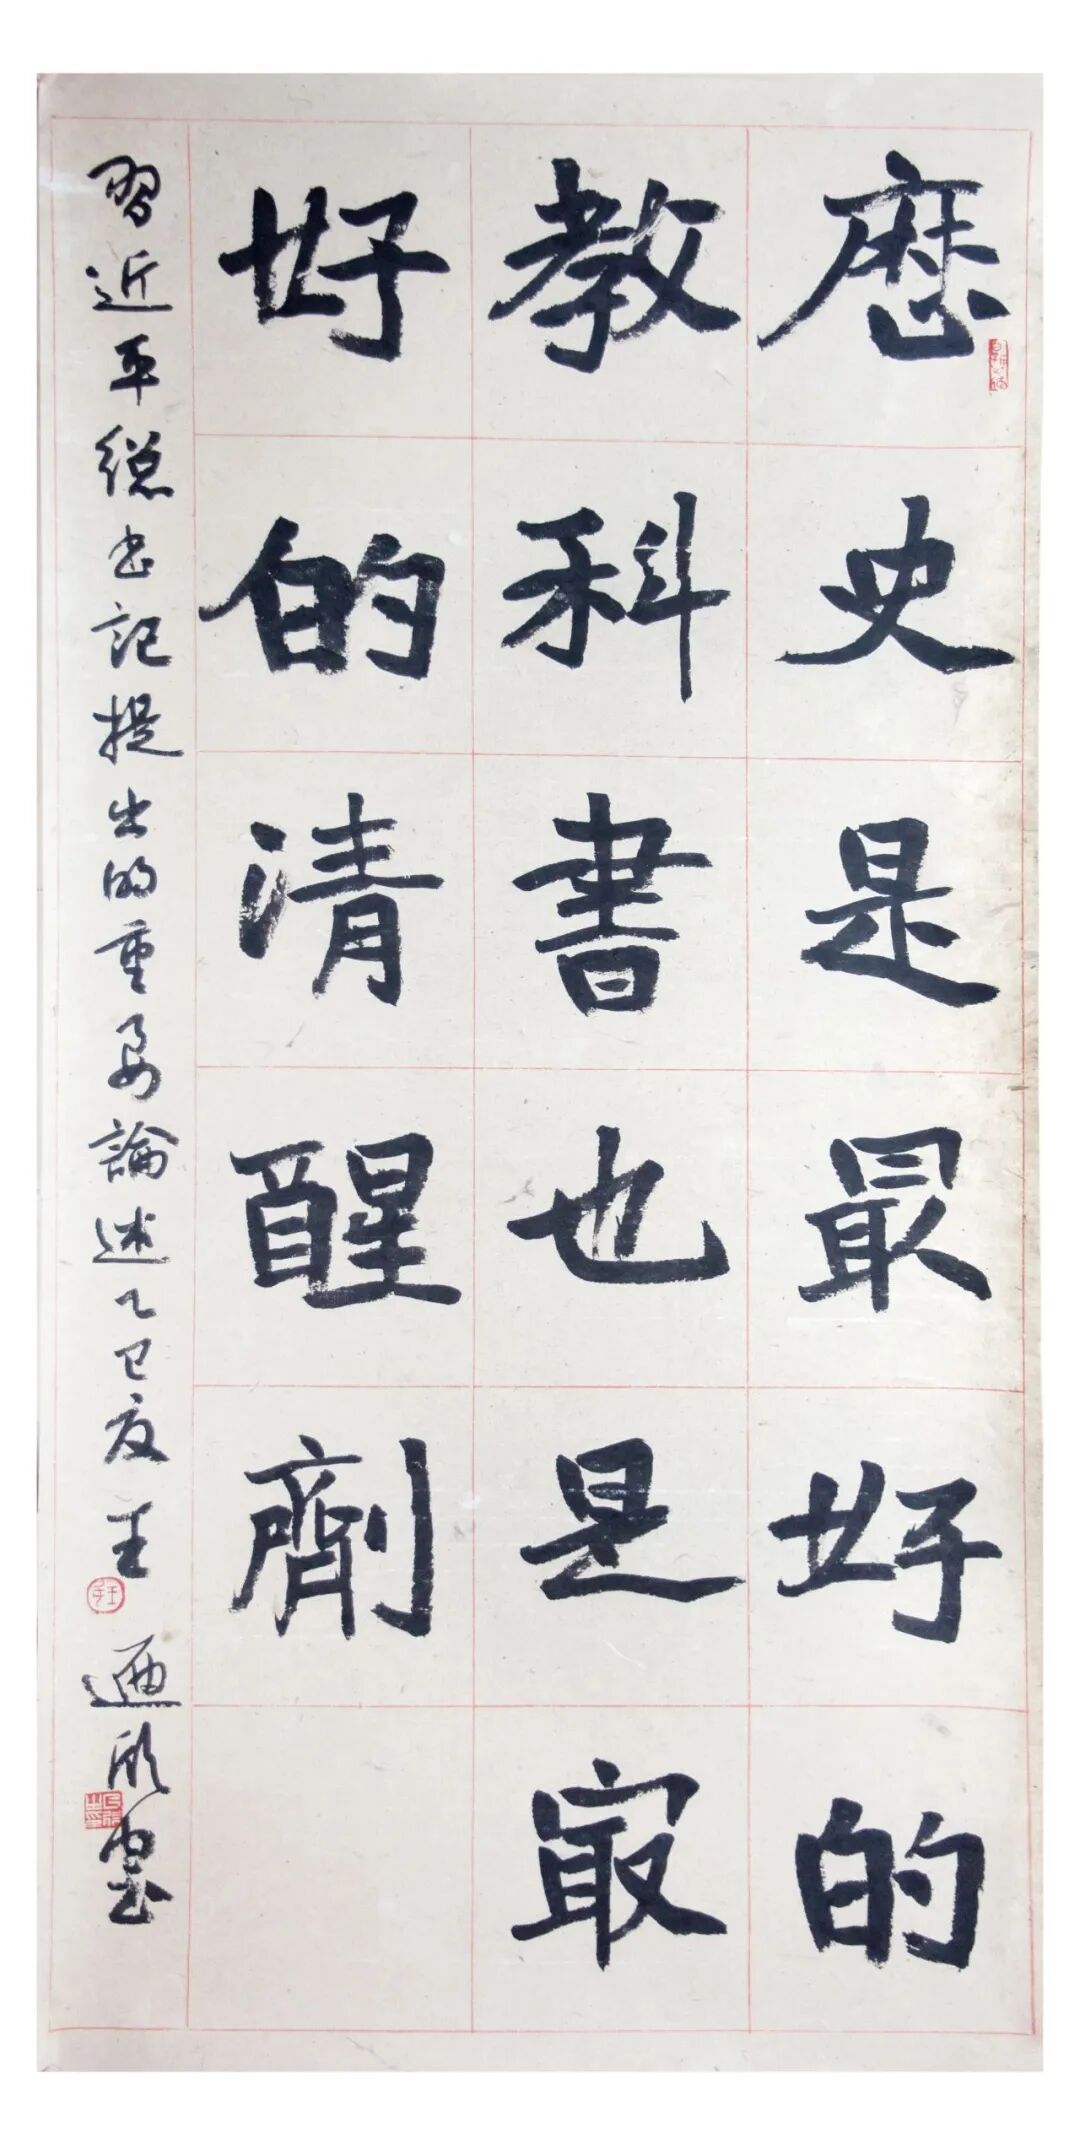 歷史是最好的
教科書也是最
好的清醒劑
習近平總书記提出的重要論述乙巳夏王
書